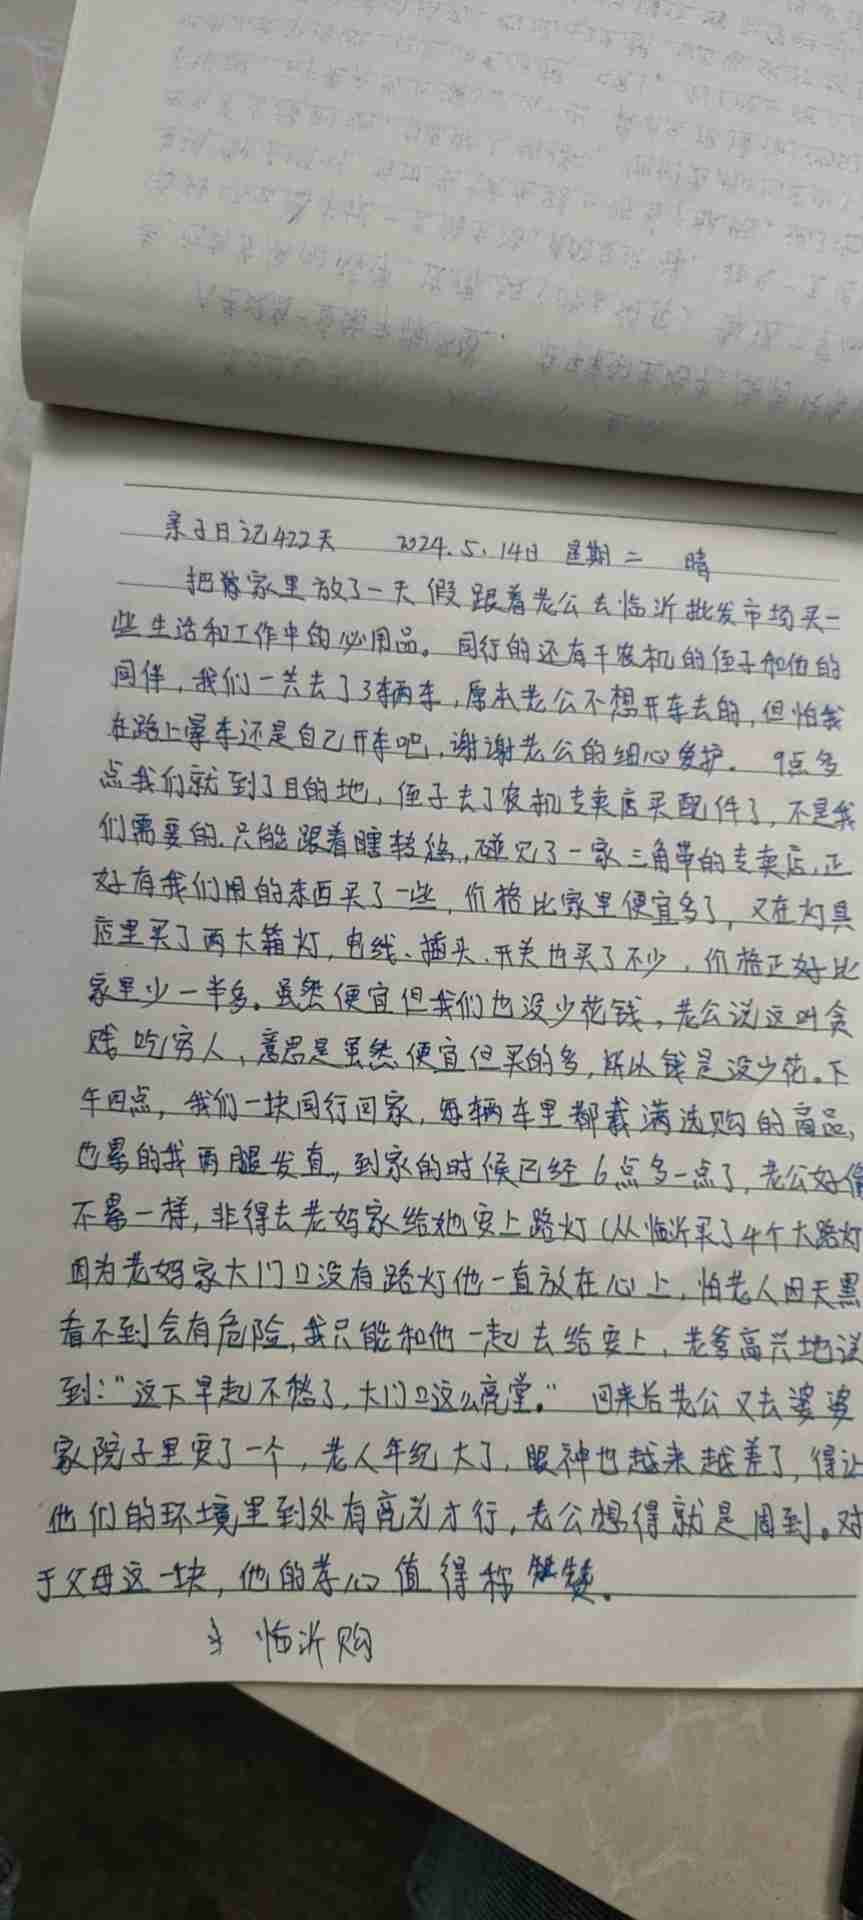 亲子日记422天 2024.5.14日 星期二 晴
把家里放了一天假跟着老公去临沂批发市场买一
些生活和工作中的必用品。同行的还有干农机的侄子和他的
同伴，我们一共去了3辆车，原本老公不想开车去的，但怕我
在路上晕车还是自己开车吧，谢谢老公的细心爱护。9点多
点我们就到了目的地，侄子去了农机专卖店买配件了，不是我
们需要的，只能跟着瞎转悠，碰见了一家三角带的专卖店，正
好有我们用的东西买了一些，价格比家里便宜多了，又在灯具
店里买了两大箱灯，电线、插头、开关也买了不少，价格正好比
家里少一半多。虽然便宜但我们也没少花钱，老公说这叫贪
贱吃穷人，意思是虽然便宜但买的多，所以钱是没少花。下
午四点，我们一块同行回家，每辆车里都载满选购的商品，
也累的我两腿发直，到家的时候已经6点多一点了，老公好像
不累一样，非得去老妈家给她安上路灯（从临沂买了4个大路灯
因为老妈家大门口没有路灯他一直放在心上，怕老人因天黑
看不到会有危险，我只能和他一起去给安上，老爹高兴地说
到：“这下早起不愁了，大门口这么亮堂。”回来后老公又去婆婆
家院子里安了一个，老人年纪大了，眼神也越来越差了，得让
他们的环境里到处有亮光才行，老公想得就是周到。对
于父母这一块，他的孝心值得称赞。
临沂购